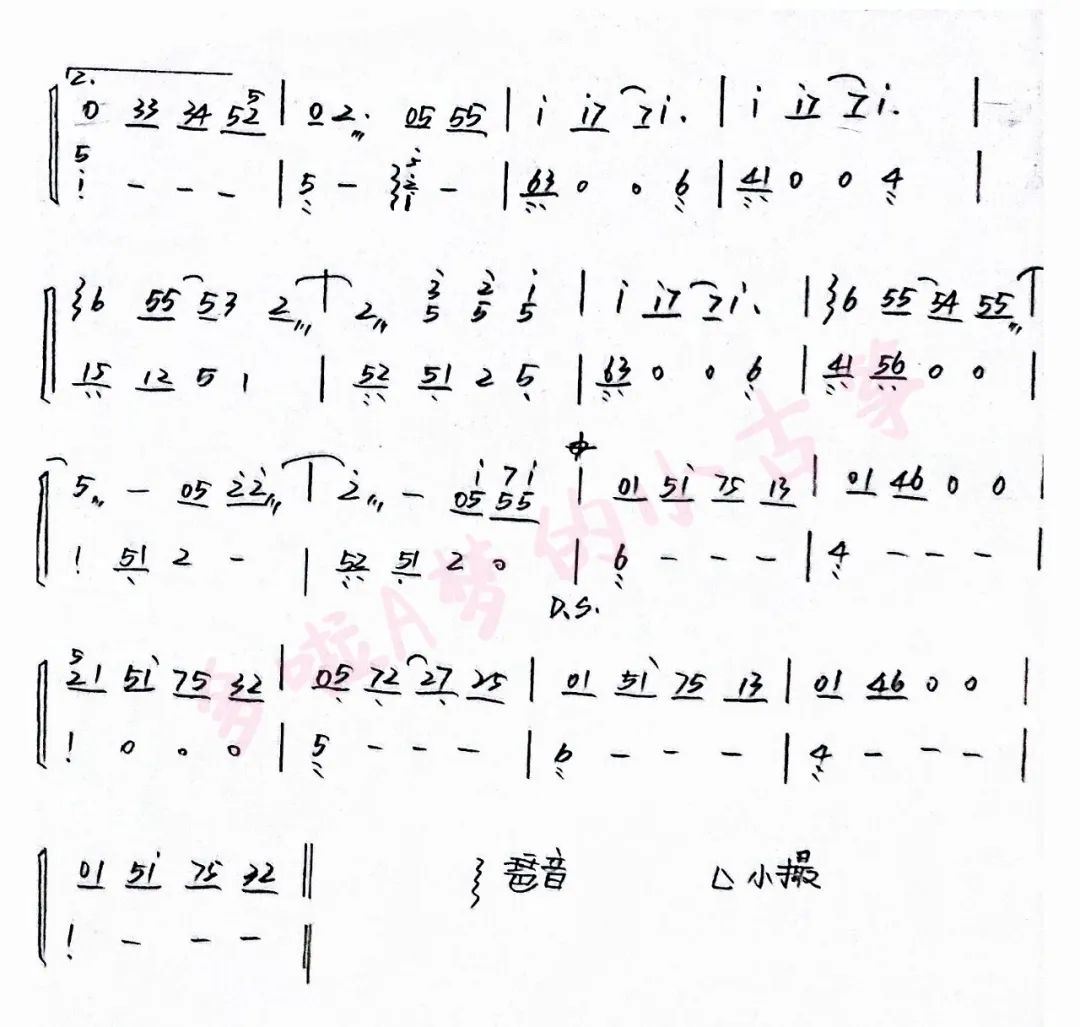 2.
0 33 34 52 5 | 0 2. 05 55 | i i7 7i. | i i7 7i. |
5 i - - - | 5 - 5 2 1 - | 63 0 0 6 | 41 0 0 4 |
6 55 53 2 | 2 3 5 2 5 i 5 | i i7 7i. | 6 55 54 55 |
15 12 5 1 | 52 51 2 5 | 63 0 0 6 | 41 56 0 0 |
5 - 05 22 | 2 - 05 55 i 7i | 01 5i 75 13 | 01 46 0 0 |
1 51 2 - | 52 51 2 0 | 6 - - - | 4 - - - |
D.S.
5 21 5i 75 32 | 05 72 27 25 | 01 5i 75 13 | 01 46 0 0 |
1 0 0 0 | 5 - - - | 6 - - - | 4 - - - |
01 5i 75 32 || 琶音 小撮
1 - - - ||
多啦A梦的小古筝